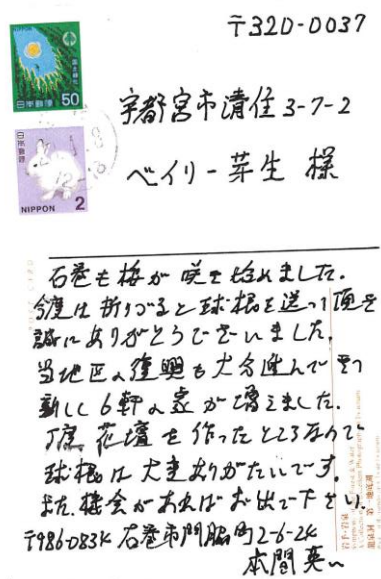 〒320-0037
NIPPON
国土緑化
日本郵便 50
宇都宮市清住3-7-2
日本郵便
ベイリー芽生 様
NIPPON 2
石巻も梅が咲き始めました.
今度は折りづると球根を送って頂き
誠にありがとうございました.
当地区の復興も大分進んで
新しく6軒の家が増えました.
丁度花壇を作ったところなので
球根は大変ありがたいです
また機会があればお出で下さい.
〒986-0834 石巻市門脇町2-6-24
本間英一